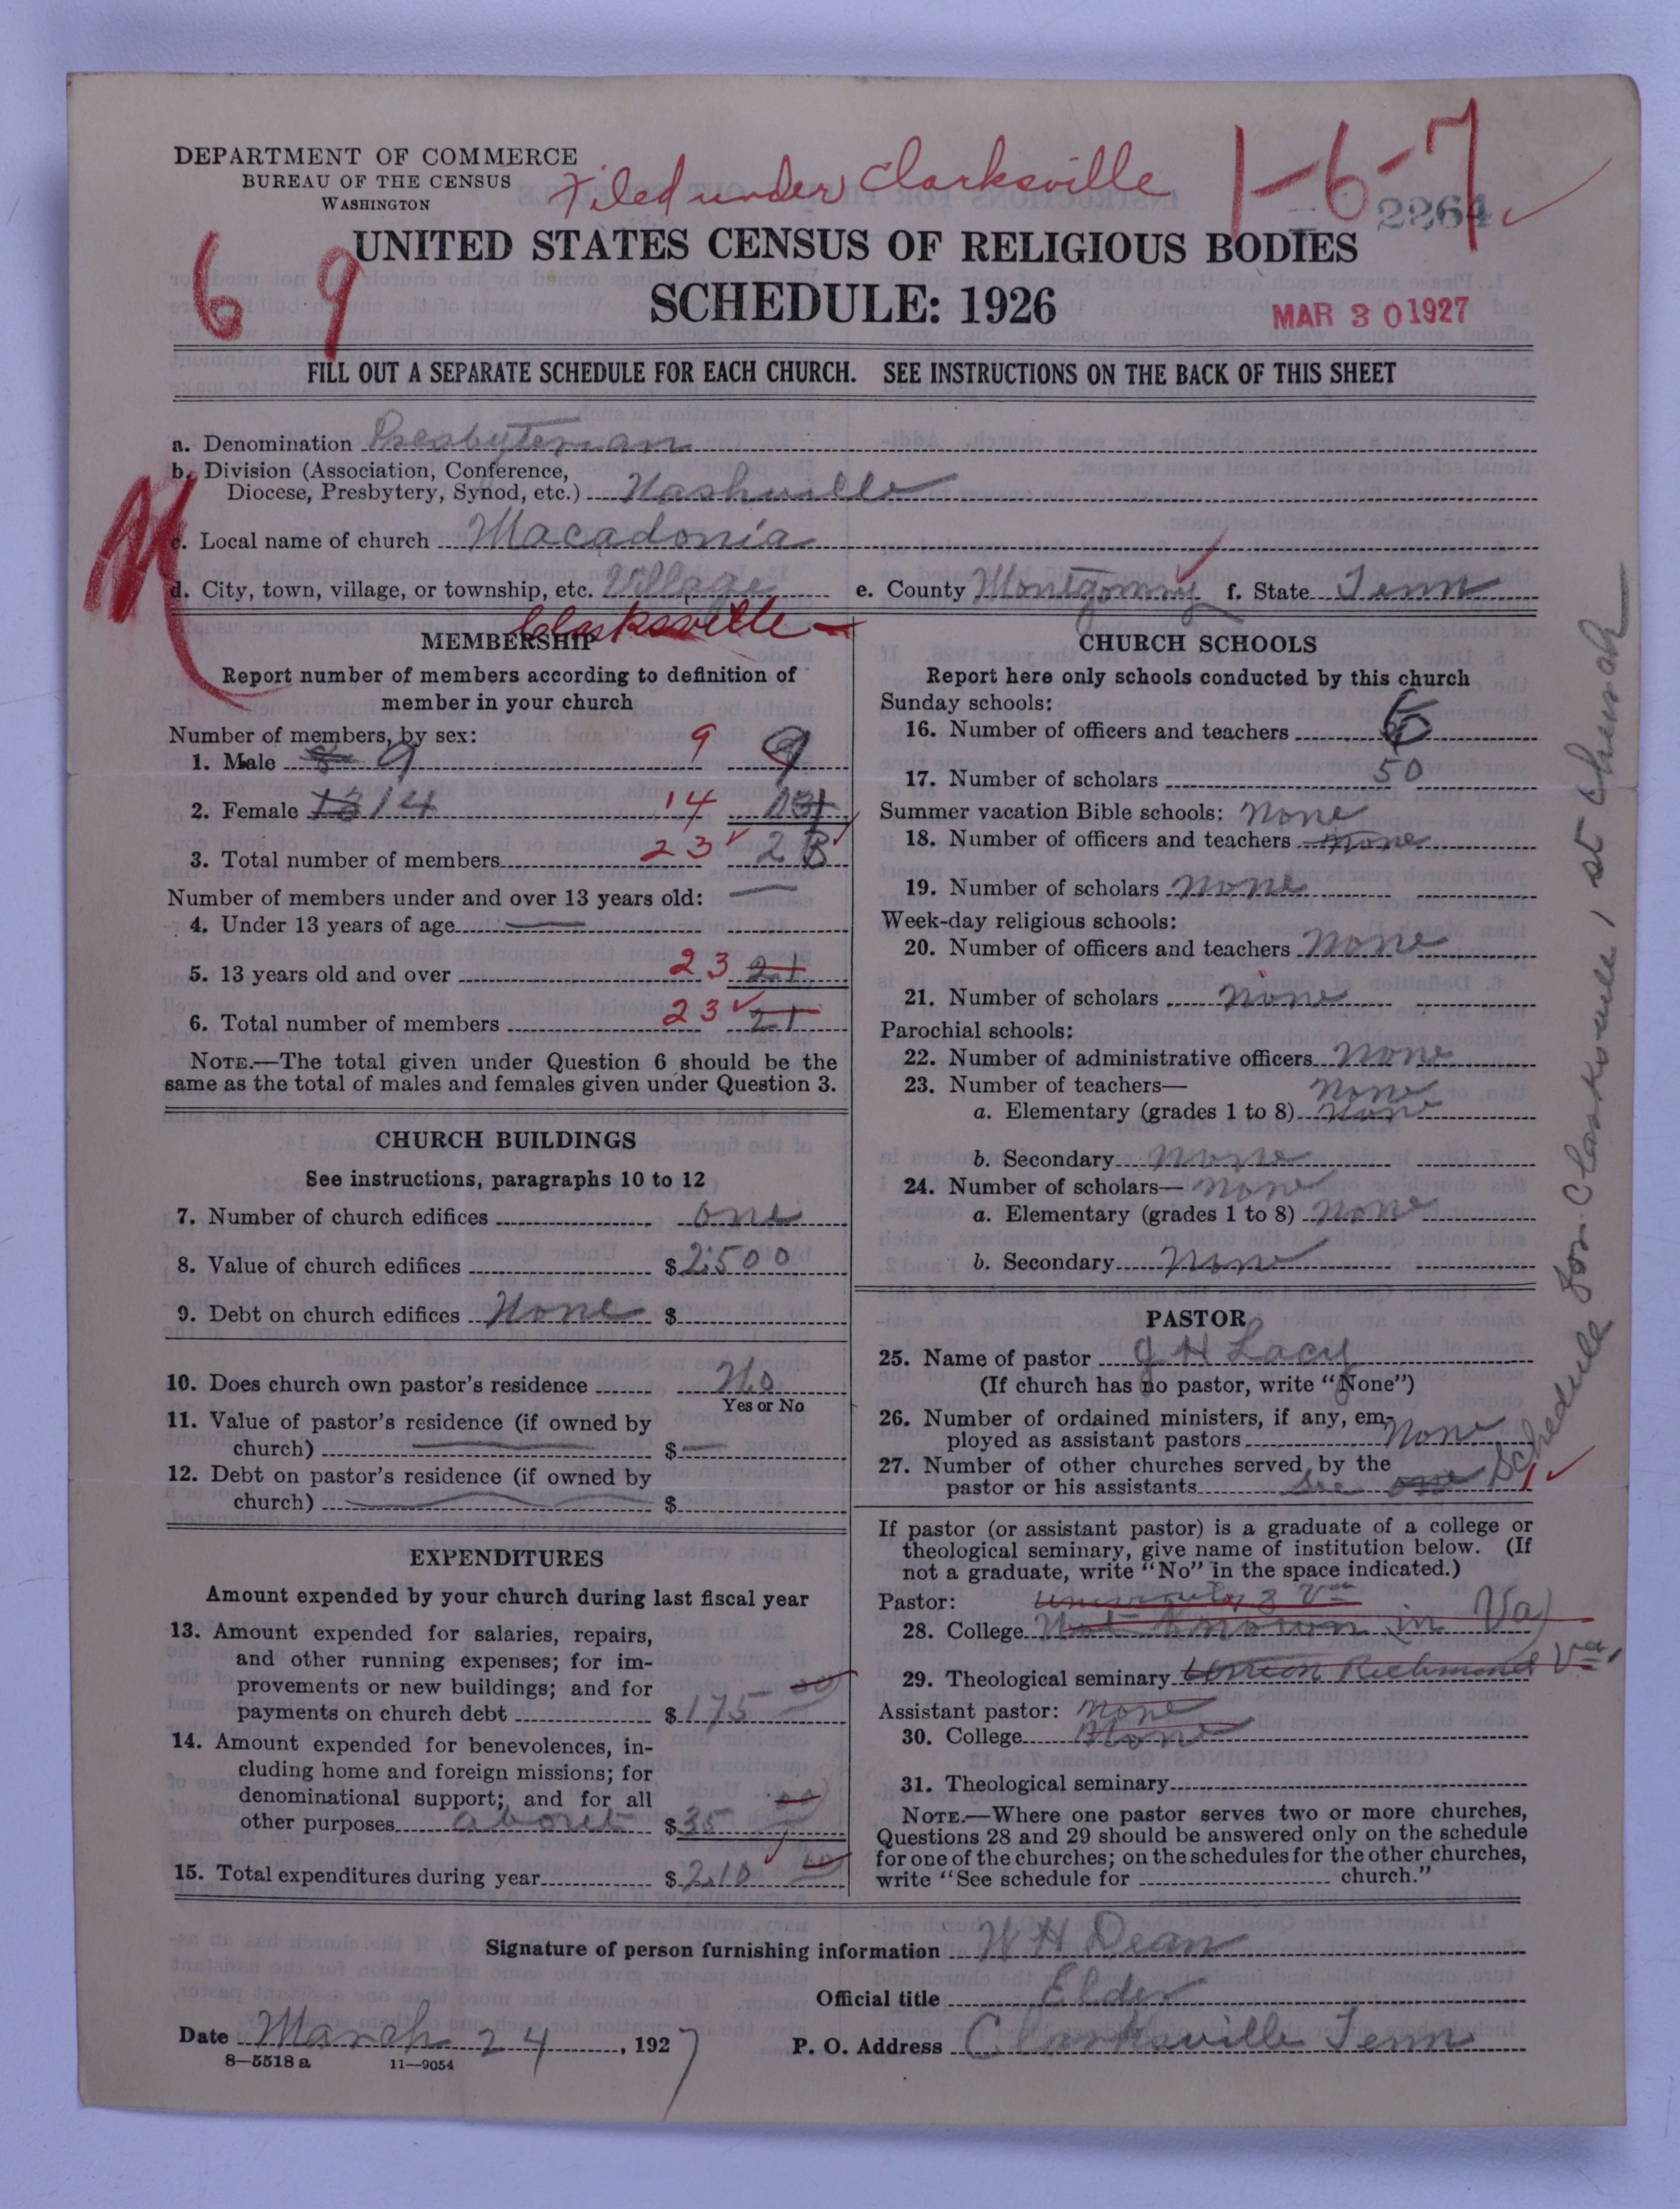 DEPARTMENT OF COMMERCE
BUREAU OF THE CENSUS
WASHINGTON
Filed under Clarksville
1-6-7
2264
UNITED STATES CENSUS OF RELIGIOUS BODIES
6 9
SCHEDULE: 1926
MAR 30 1927
FILL OUT A SEPARATE SCHEDULE FOR EACH CHURCH. SEE INSTRUCTIONS ON THE BACK OF THIS SHEET
a. Denomination Presbyterian
b. Division (Association, Conference,
Diocese, Presbytery, Synod, etc.) Nashville
c. Local name of church Macadonia
d. City, town, village, or township, etc. Village e. County Montgomry f. State Tenn
Clarksville
MEMBERSHIP
Report number of members according to definition of
member in your church
Number of members, by sex:
1. Male 8 9 9 9
2. Female 13 14 14
3. Total number of members 23 23
Number of members under and over 13 years old: —
4. Under 13 years of age —
5. 13 years old and over 23 21
6. Total number of members 23 21
NOTE.—The total given under Question 6 should be the
same as the total of males and females given under Question 3.
CHURCH BUILDINGS
See instructions, paragraphs 10 to 12
7. Number of church edifices one
8. Value of church edifices $2500
9. Debt on church edifices None $
10. Does church own pastor's residence No
Yes or No
11. Value of pastor's residence (if owned by
church) — $—
12. Debt on pastor's residence (if owned by
church) — $
EXPENDITURES
Amount expended by your church during last fiscal year
13. Amount expended for salaries, repairs,
and other running expenses; for im-
provements or new buildings; and for
payments on church debt $175 00
14. Amount expended for benevolences, in-
cluding home and foreign missions; for
denominational support; and for all
other purposes about $35 00
15. Total expenditures during year $210 00
CHURCH SCHOOLS
Report here only schools conducted by this church
Sunday schools:
16. Number of officers and teachers
17. Number of scholars 50
Summer vacation Bible schools: None
18. Number of officers and teachers None
19. Number of scholars None
Week-day religious schools:
20. Number of officers and teachers None
21. Number of scholars None
Parochial schools:
22. Number of administrative officers None
23. Number of teachers— None
a. Elementary (grades 1 to 8) None
b. Secondary None
24. Number of scholars— None
a. Elementary (grades 1 to 8) None
b. Secondary None
PASTOR
25. Name of pastor J H Lacy
(If church has no pastor, write "None")
26. Number of ordained ministers, if any, em-
ployed as assistant pastors None
27. Number of other churches served by the
pastor or his assistants See one 1
Schedule for Clarksville 1st Church
If pastor (or assistant pastor) is a graduate of a college or
theological seminary, give name of institution below. (If
not a graduate, write "No" in the space indicated.)
Pastor: University of Va
28. College Not Known in Va)
29. Theological seminary Union Richmond Va
Assistant pastor: None
30. College None
31. Theological seminary
NOTE.—Where one pastor serves two or more churches,
Questions 28 and 29 should be answered only on the schedule
for one of the churches; on the schedules for the other churches,
write "See schedule for church."
Signature of person furnishing information W H Dean
Official title Elder
Date March 24, 1927 P. O. Address Clarksville Tenn
8—5518 a 11—9054